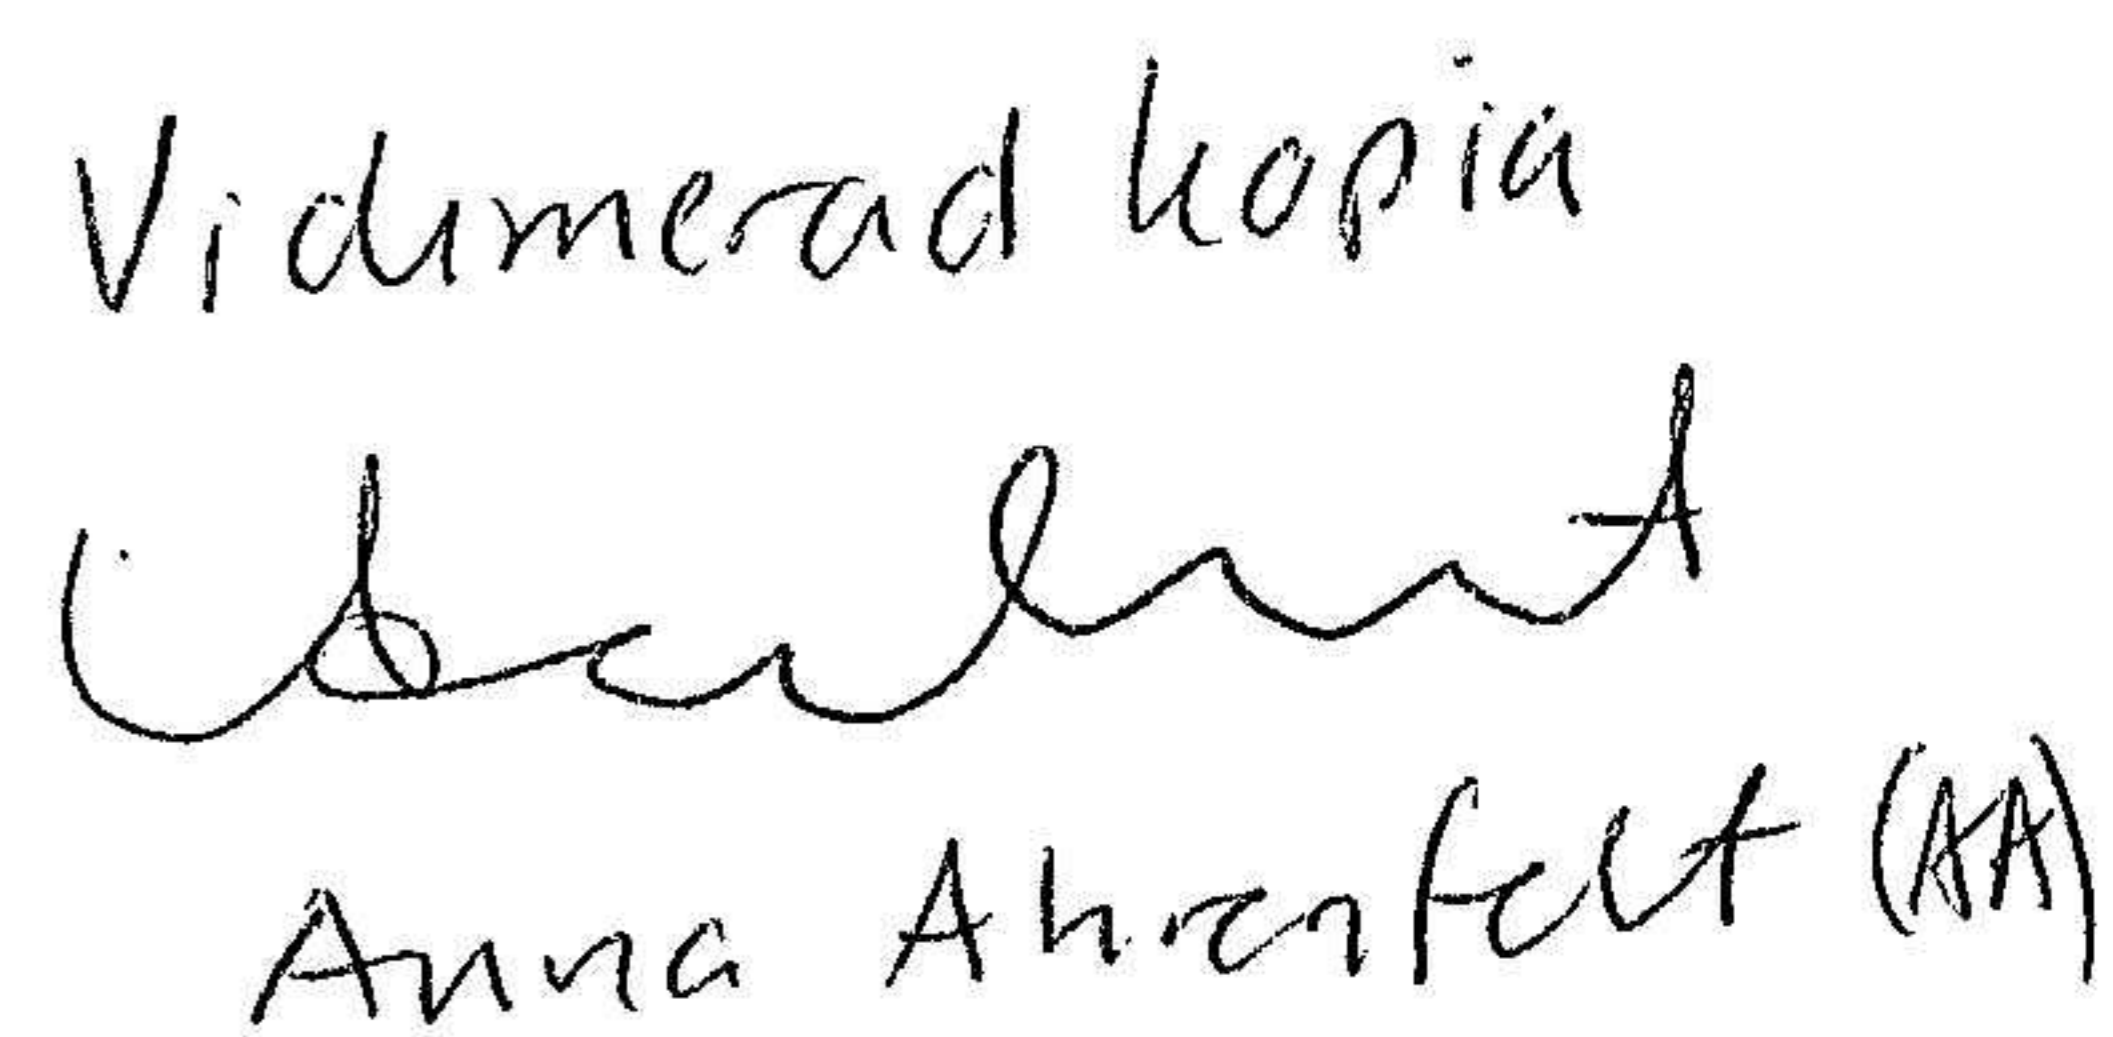 Vidimerad kopia
Anna Ahrenfelt (AA)